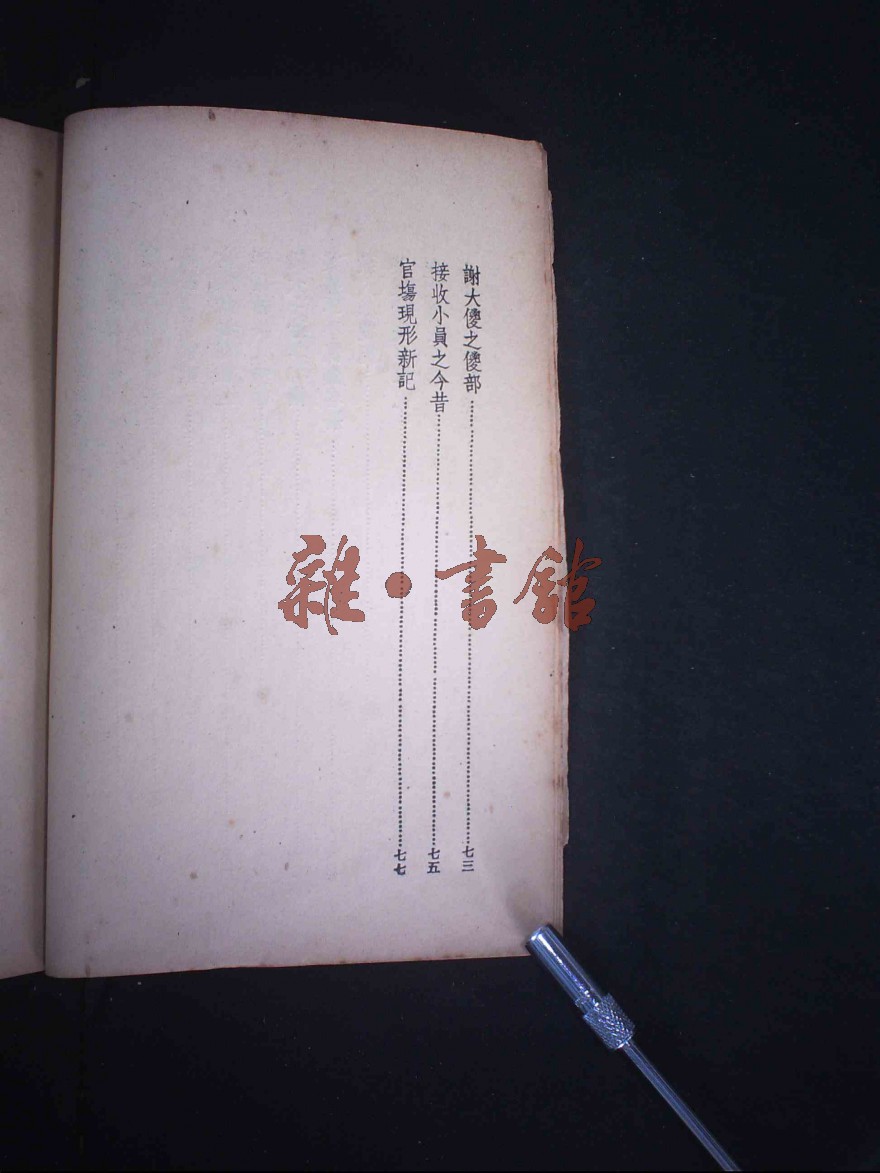 謝大傻之傻部……七三
接收小員之今昔……七五
官塲現形新記……七七
雜·書館